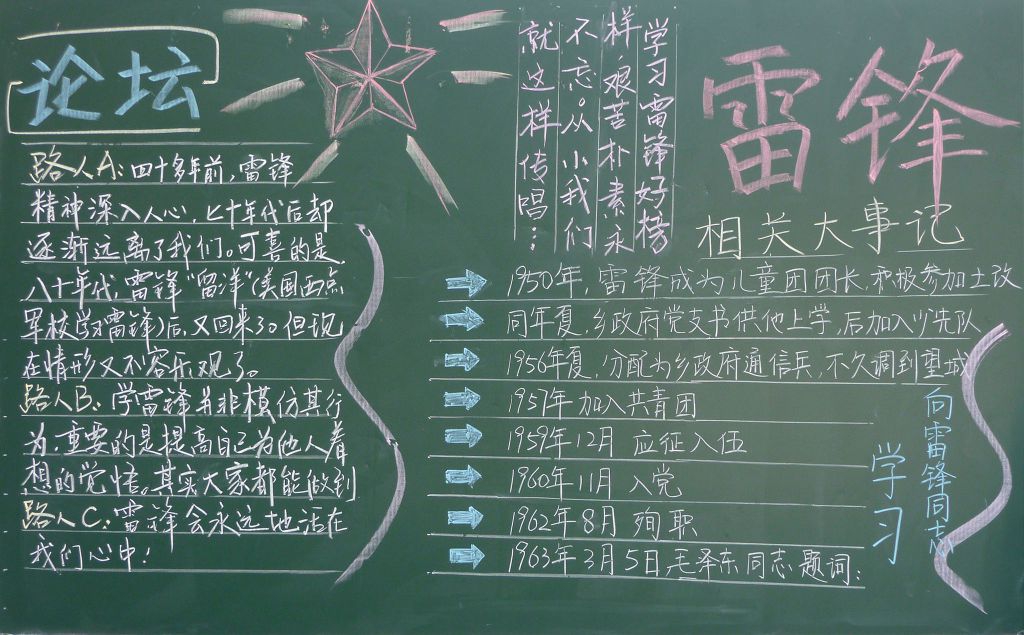 论坛
路人A:四十多年前,雷锋
精神深入人心,七十年代后却
逐渐远离了我们。可喜的是,
八十年代,雷锋"留洋"(美国西点
军校学习雷锋)后,又回来了。但现
在情形又不容乐观了。
路人B:学雷锋并非模仿其行
为,重要的是提高自己为他人着
想的觉悟。其实大家都能做到
路人C:雷锋会永远地活在
我们心中!
学习雷锋好榜
样艰苦朴素永
不忘。从小我们
就这样传唱…
雷锋
相关大事记
1950年,雷锋成为儿童团团长,积极参加土改
同年夏,乡政府党支书供他上学,后加入少先队
1956年夏,分配为乡政府通信兵,不久调到望城
1957年加入共青团
1959年12月 应征入伍
1960年11月 入党
1962年8月 殉职
1963年3月5日毛泽东同志题词:
向雷锋同志
学习